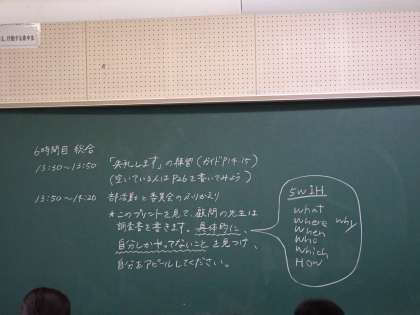 6時間目 総合
13:30～13:50 「失礼します」の練習(ガイドP14.15)
(空いている人はP26を書いてみよう)
13:50～14:20 部活動と委員会のふりかえり
*このプリントを見て、顧問の先生は
調査書を書きます。具体的に、
自分しかやってないことを見つけ、
自分をアピールしてください。
5W1H
what
where why
when
who
which
How